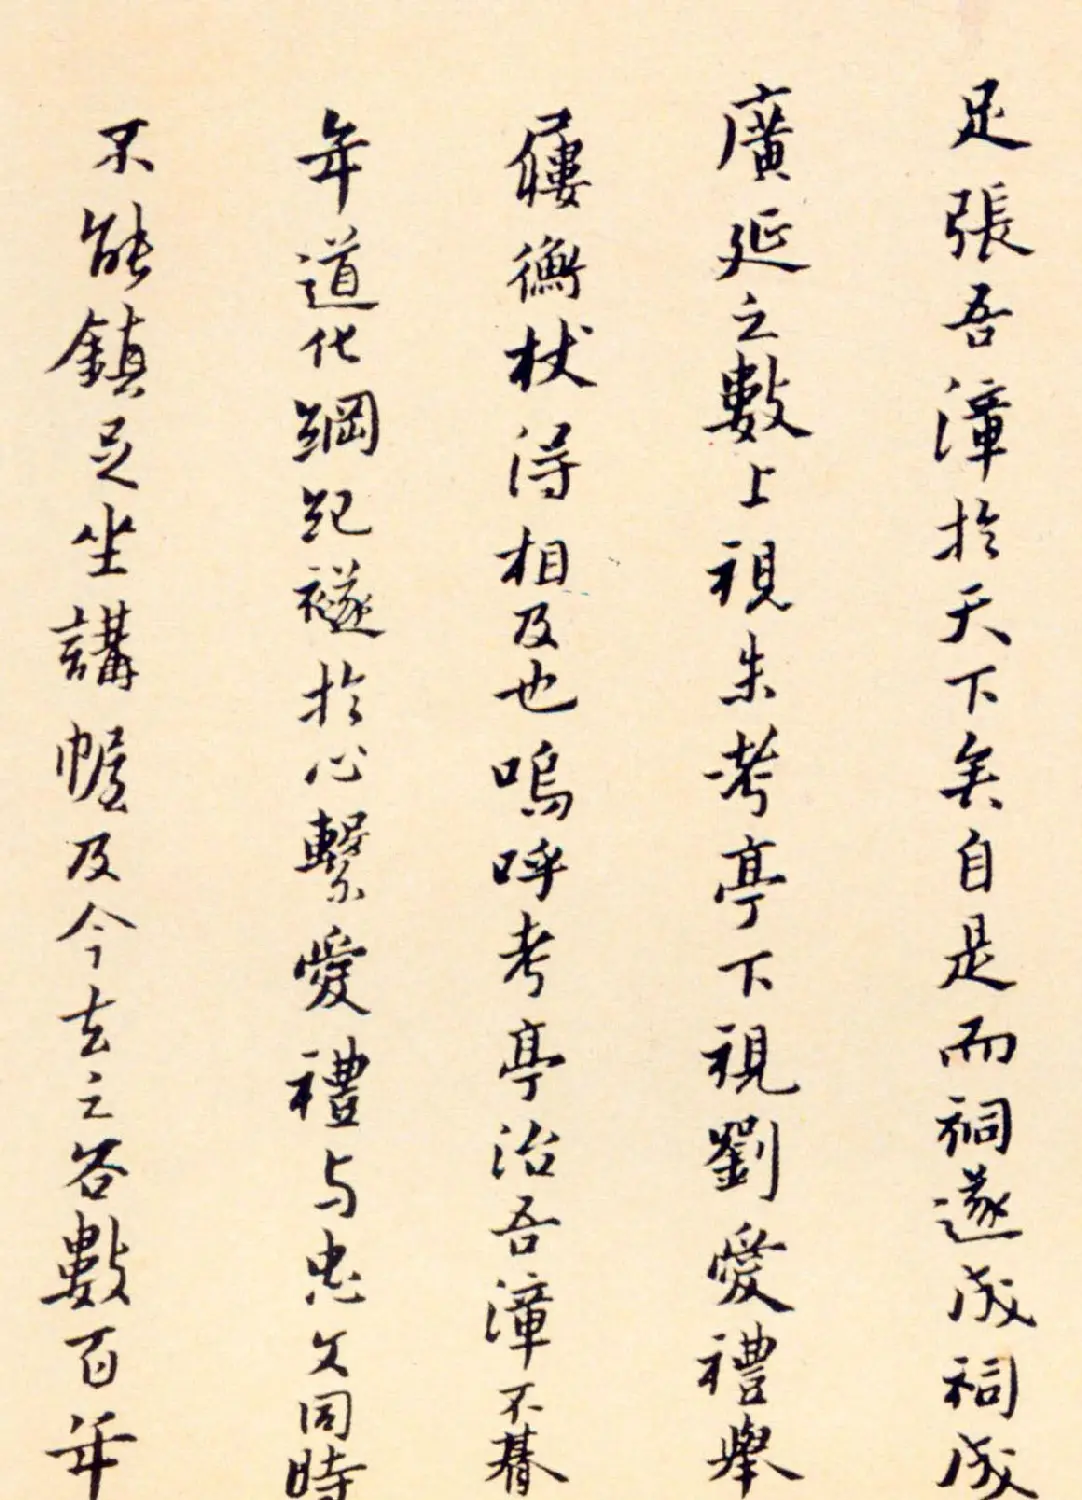 足張吾漳於天下矣自是而祠遂成祠成
廣延之數上視朱考亭下視劉愛禮舉
屨衡杖得相及也嗚呼考亭治吾漳不朞
年道化綱紀襚於心繫愛禮与忠文同時
不能鎮之坐講幄及今去之各數百年